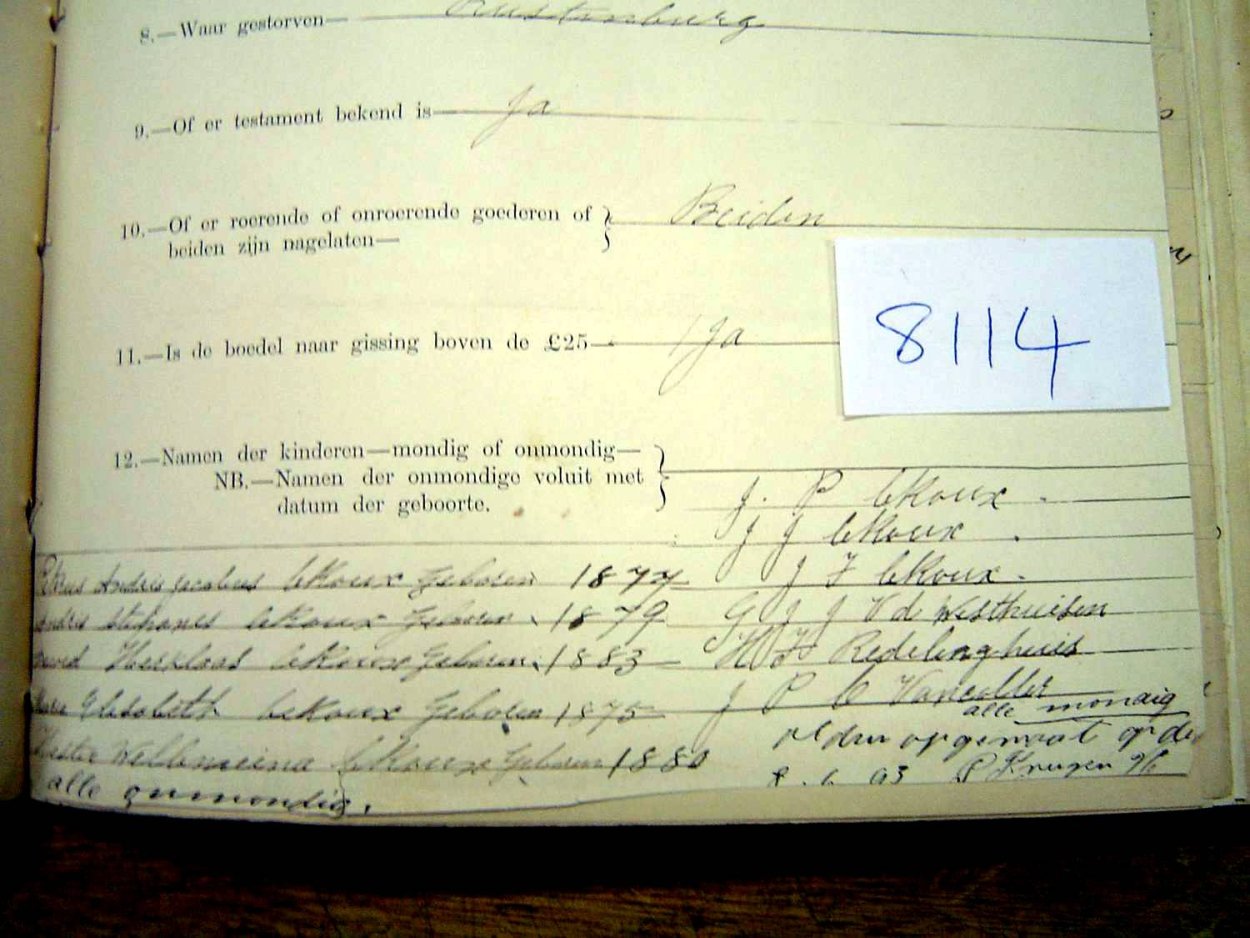 8.—Waar gestorven— Rustenburg
9.—Of er testament bekend is— Ja
10.—Of er roerende of onroerende goederen of } Beiden
beiden zijn nagelaten—
11.—Is de boedel naar gissing boven de £25— Ja
8114
12.—Namen der kinderen—mondig of onmondig—
NB.—Namen der onmondige voluit met
datum der geboorte.
J. P leRoux.
J J leRoux.
J F leRoux.
G J J Vd Westhuisen
H F Redelinghuis
J P C
alle mondig
Andries Jacobus leRoux Geboren 1877
Stephanus leRoux Geboren 1879
leRoux Geboren 1883
Elesabeth leRoux Geboren 1875
Hester leRoux Geboren 1880
alle onmondig.
P Kruger